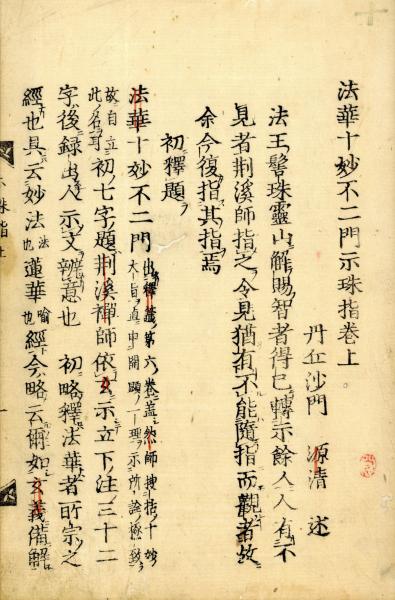 法華十妙不二門示珠指卷上
丹丘沙門　源清　述
法王髻珠靈山解賜智者得已轉示餘人人有不
見者荆溪師指之今見猶有不能隨指而觀者故
余今復指其指焉
初釋題
法華十妙不二門出釋籤第六卷蓋
大旨直申開顯一理示所論
故自立
此名耳初七字題荆溪禪師依玄示立下注三十二
字後錄出人示文辨意也　初略釋法華者所宗之
經也具云妙法法也蓮華喻也經今略云爾如玄義備解
珠指上